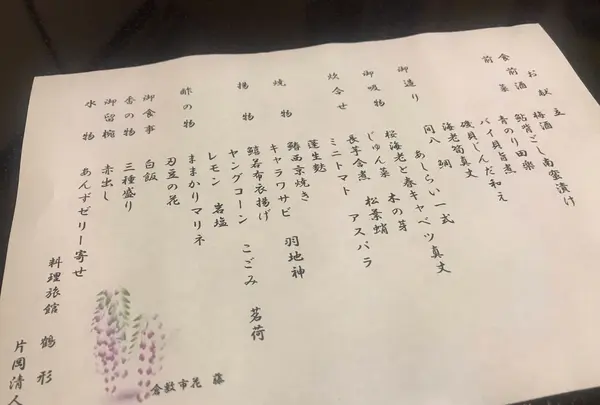 お献立
食前酒 梅酒
前菜 南蛮漬け
青のり田楽
バイ貝旨煮
磯貝じんだ和え
海老筍真丈
御造り 鯛
間八 あしらい一式
御吸物 桜海老と春キャベツ真丈
じゅん菜 木の芽
炊合せ 長芋含煮 松葉蛸
ミニトマト アスパラ
蓬生麩
焼物 鰆西京焼き
キャラワサビ 羽地神
揚物 鱚若布衣揚げ
ヤングコーン こごみ 茗荷
レモン 岩塩
酢の物 ままかりマリネ
刃豆の花
御食事 白飯
香の物 三種盛り
御留椀 赤出し
水物 あんずゼリー寄せ
料理旅館 鶴形
片岡清人
倉敷市花 藤